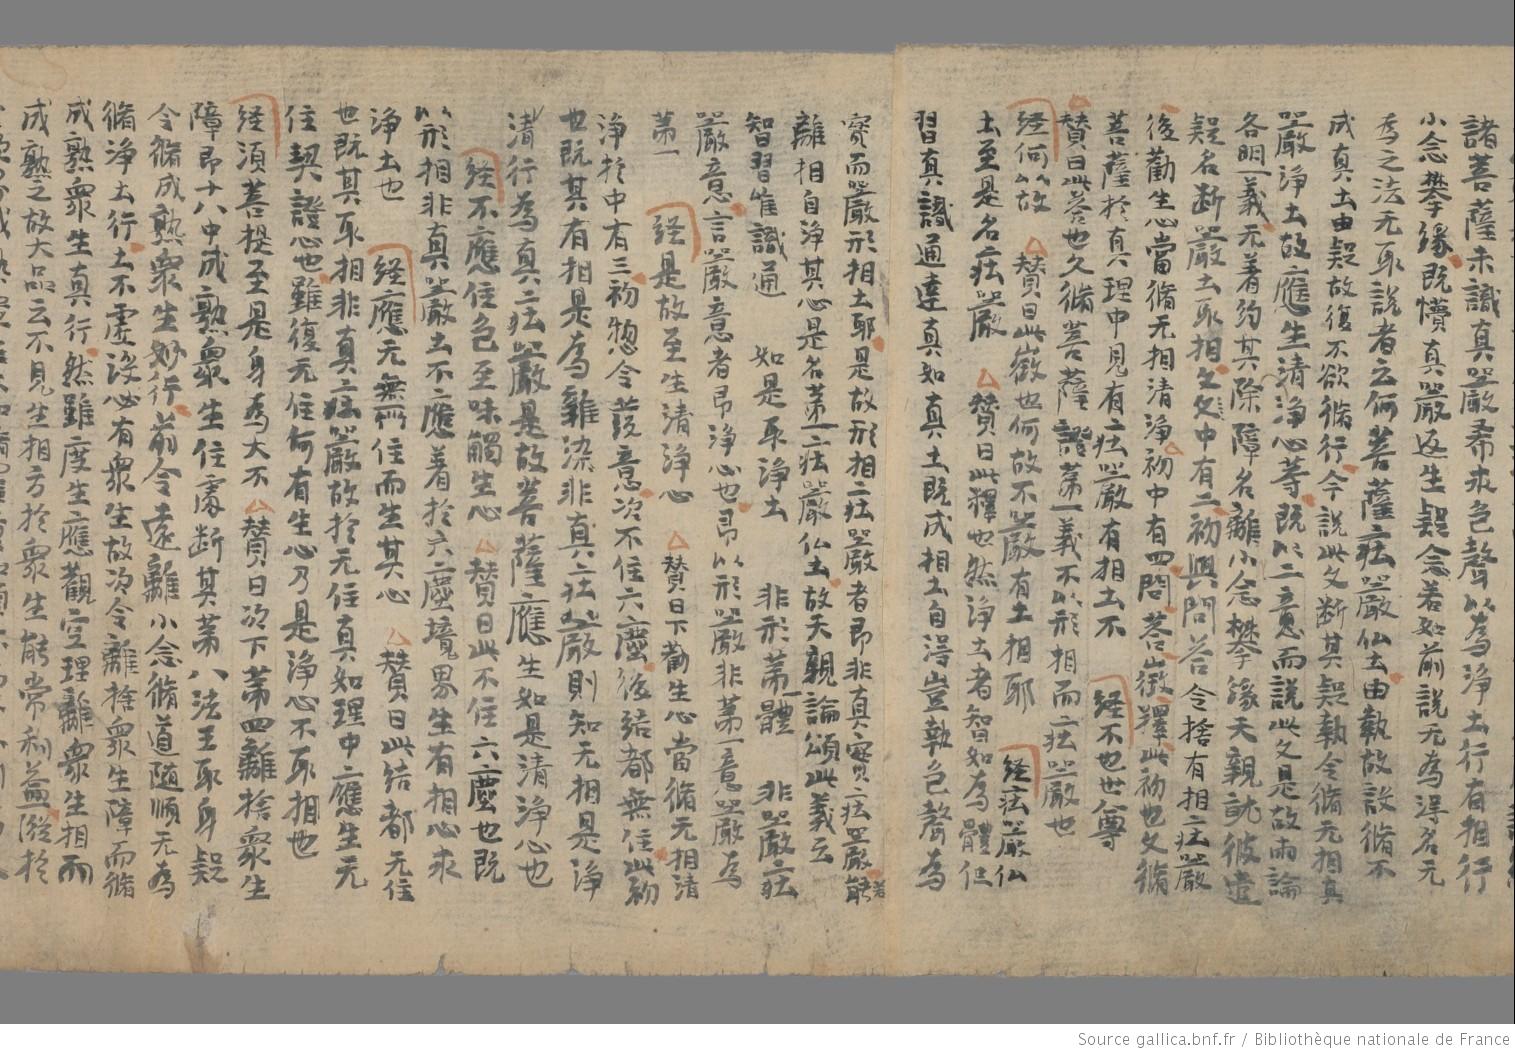 諸菩薩未識真嚴希求色聲以為淨土行有相行
小念攀緣既懵真嚴返生疑念若如前說无為得名无
為之法无取說者云何菩薩庄嚴仏土由執故設脩不
成真土由疑故復不欲脩行今說此文断其疑執令脩无相真
嚴淨土故應生清淨心等既以二意而說此文是故兩論
各明一義无著約其除障名離小念攀緣天親就彼
疑名断嚴土取相文文中有二初興問荅令捨有相庄嚴
後勸生心當脩无相清淨初中有四問荅徵釋此初也文脩
菩薩於真理中見有庄嚴有相土不 経不也世尊
賛曰此荅也久脩菩薩證苐一義不以形相而庄嚴也
経何以故 賛曰此徵也何故不嚴有土相耶 経庄嚴仏
土至是名庄嚴 賛曰此釋也然淨土者智如為體但
習真識通達真如真土既成相土自得豈執色聲為
實而嚴形相土耶是故形相庄嚴者即非真實庄嚴能者
離相自淨其心是名苐一庄嚴仏土故天親論頌此義云
智習唯識通 如是取淨土 非形苐一體 非嚴庄
嚴意言嚴意者即淨心也即以形嚴非苐一意嚴為
苐一 経是故至生清淨心 賛曰下勸生心當脩无相清
淨於中有三初惣令菝意次不住六塵後結都無住此初
也既其有相是為雜染非真庄嚴則知无相是淨
清行為真庄嚴是故菩薩應生如是清淨心也
経不應住色至味觸生心 賛曰此不住六塵也既
以形相非真嚴土不應着於六塵境界生有相心求
淨土也 経應无無所住而生其心 賛曰此結都无住
也既其取相非真庄嚴故於无住真如理中應生无
住契證心也雖復无住何有生心乃是淨心不取相也
経須菩提至是身為大不 賛曰次下苐四離捨衆生
障即十八中成熟衆生住處断其苐八法王取身疑
令脩成熟衆生妙行前令遠離小念脩道随順无為
脩淨土行土不虚設必有衆生故次令離捨衆生障而脩
成熟衆生真行然雖度生應觀空理離衆生相而
成熟之故大品云不見生相方於衆生能常利益